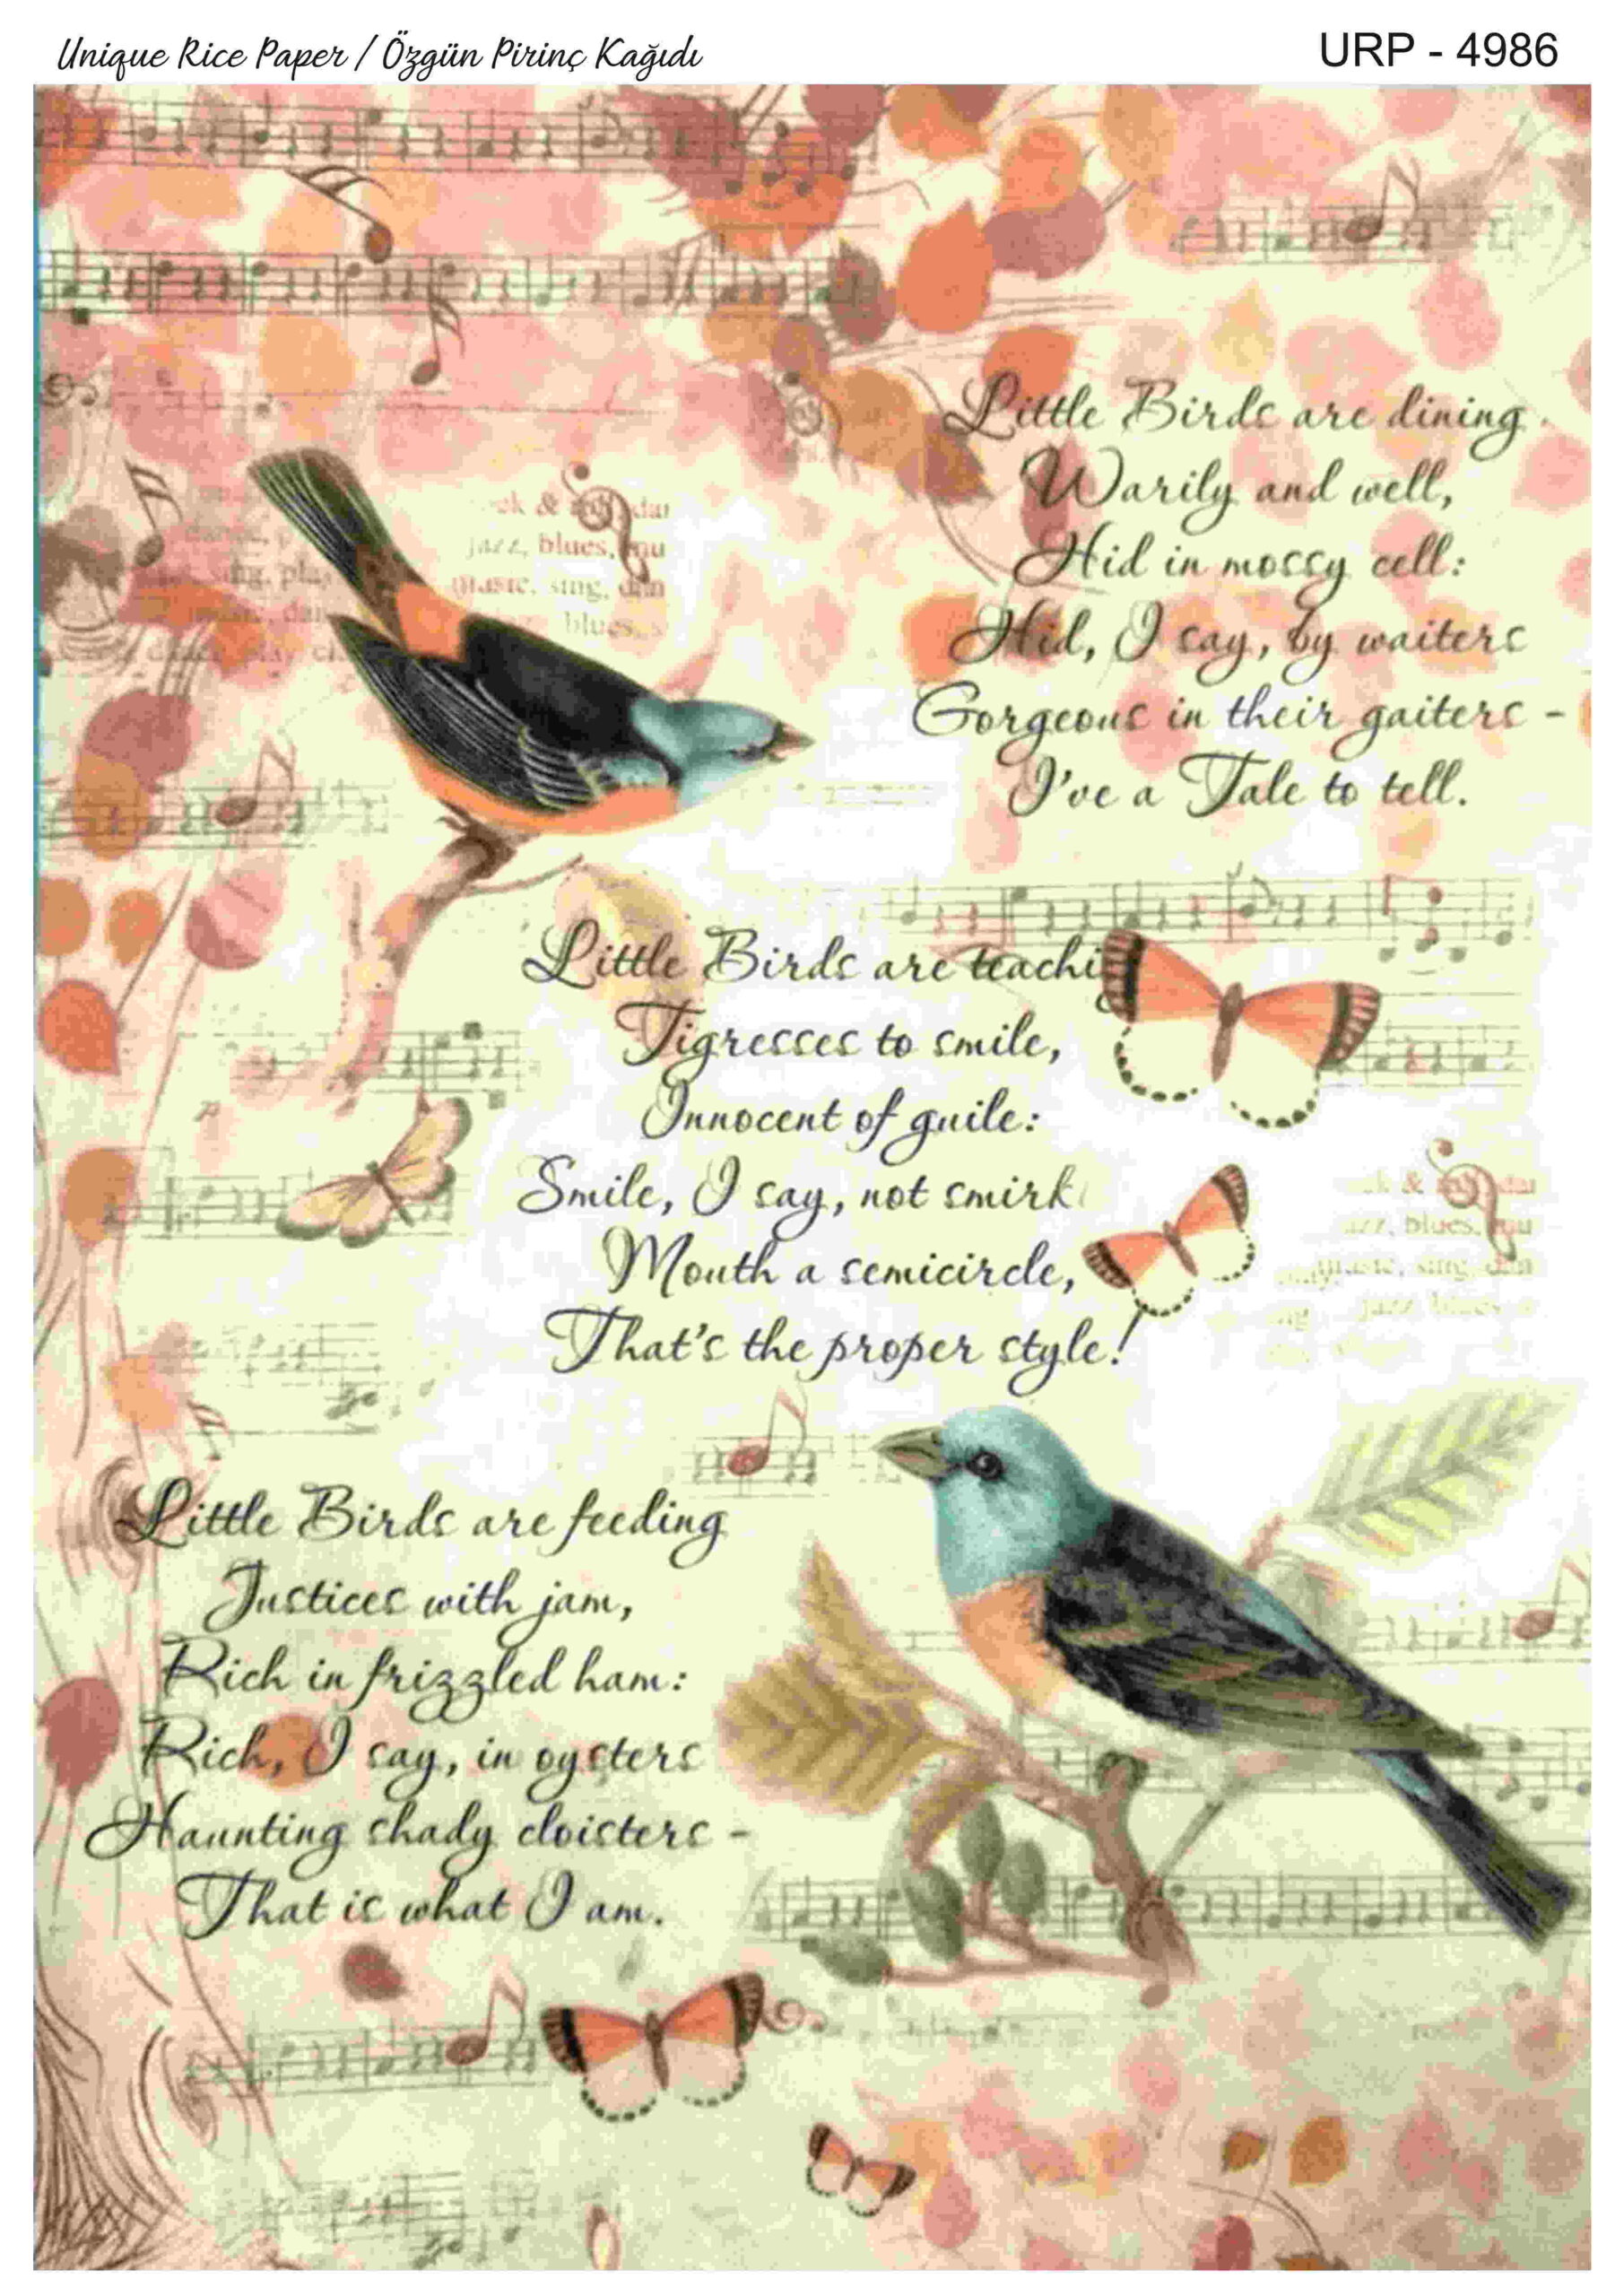 Unique Rice Paper / Özgün Pirinç Kağıdı
URP - 4986
Little Birds are dining
Warily and well,
Hid in mossy cell:
Hid, I say, by waiters
Gorgeous in their gaiters -
I've a Tale to tell.
jazz, blues,
music, sing,
blues,
Little Birds are teachi
Tigresses to smile,
Innocent of guile:
Smile, I say, not smirk
Mouth a semicircle,
That's the proper style!
blues,
Little Birds are feeding
Justices with jam,
Rich in frizzled ham:
Rich, I say, in oysters
Haunting shady cloisters -
That is what I am.